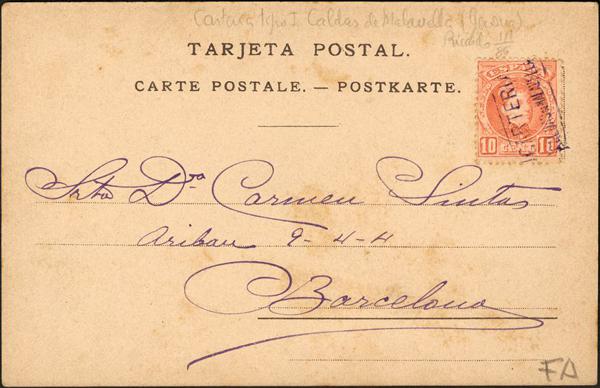 Cartería tipo I. Caldas de Malavella (Gerona)
TARJETA POSTAL.
CARTE POSTALE. — POSTKARTE.
CARTERIA
10 10
Srta Dra Carmen Sintas
Aribau 9-4-4
Barcelona
FA